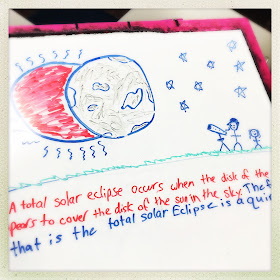 A total solar eclipse occurs when the disk of the
pears to cover the disk of the sun in the sky. The
that is the total solar Eclipse is a quir